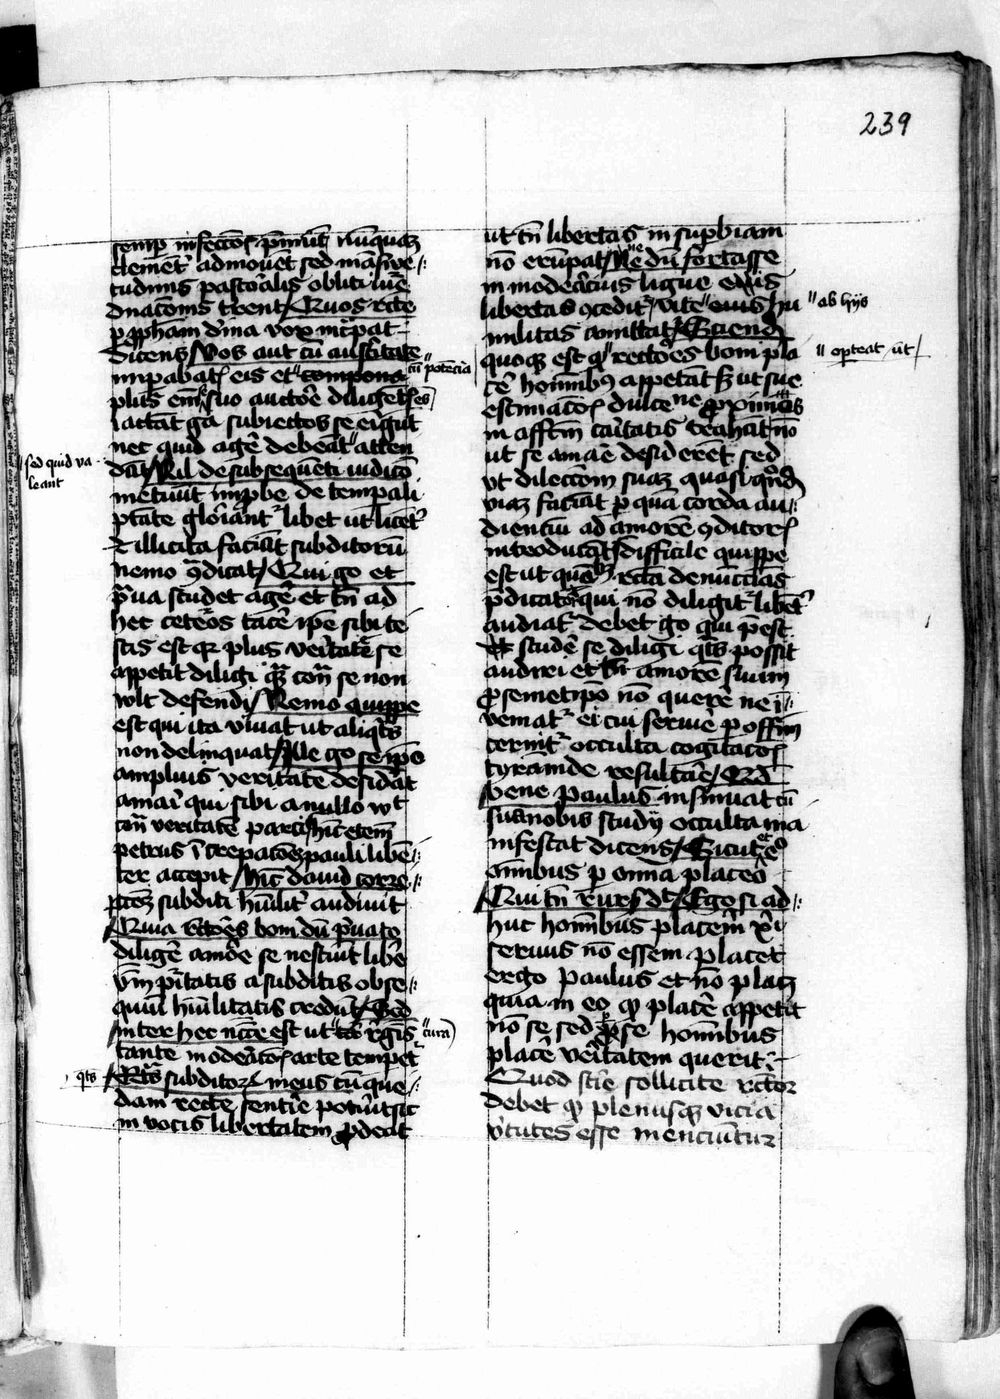 239
semp infectos premunt nunquam
clement admonent sed mansue
tudinis pastoralis obliti iure
dnacionis terrent Quos recte
p pphetam divina vox increpat
dicens Vos aut cum austeritate
impabatis eis et cum potencia
plus enim se suo auctore diligentes
iactant erga subiectos se erigunt
nec quid agere debeant atten
dunt sed quid valeant Nil de subsequenti iudicio
metuunt improbe de temporali
ptate gloriantur libet ut licenter
et illicita faciant subditorum
nemo contradicat Qui ergo et
praua studet agere et tamen ad
hec ceteros tacere ipse sibi te
stis est quia plus veritate se
appetit diligi quam contra se non
wlt defendi Nemo quippe
est qui ita vivat ut aliquatenus
non delinquat Ille ergo se ipso
amplius veritate desiderat
amari qui sibi a nullo wlt
contra veritatem parci Hinc etenim
petrus increpacionem pauli liben
ter accepit Hinc david corre
pcionem subditi humiliter audiuit
Quia rectores boni dum priuato
diligere amore se nesciunt libere
vocem puritatis a subditis obse
quium humilitatis credunt Sed
inter hec necesse est ut cura regiminis
tanta moderacionis arte temperetur
quatenus subditorum mens cum que
dam recte sentire potuerit sic
in vocis libertatem prodeat
ut tamen libertas in superbiam
non erumpat Ne dum fortasse
in moderacius ligue eius
libertas conceditur vite ab hijs hu
militas amittatur Sciendum
quoque est quod oporteat ut rectores boni pla
cere hominibus appetant sed ut sue
estimacionis dulcedine proximos
in affectum caritatis trahant non
ut se amari desiderent sed
ut dilectionem suam quasi quandam
viam faciant per quam corda au
diencium ad amorem conditoris
introducant Difficile quippe
est ut quamlibet recta denuncians
predicator qui non diligitur libenter
audiatur debet ergo qui preest
et studere se diligi quatenus possit
audiri et tamen amorem suum
pro semetipso non querere ne in
veniatur ei cui seruire per officium
cernitur occulta cogitacionis
tyrannide resultare Quod
bene Paulus insinuat cum
sua nobis studij occulta ma
nifestat dicens Sicut et ego
omnibus per omnia placeo
Qui tamen rursus dicit Ego si ad
huc hominibus placerem christi
seruus non essem Placet
ergo Paulus et non placet
quia in eo quod placere appetit
non se sed per se hominibus
placere veritatem querit
Quod scire sollicite rector
debet quod plerumque vicia
virtutes esse menciuntur